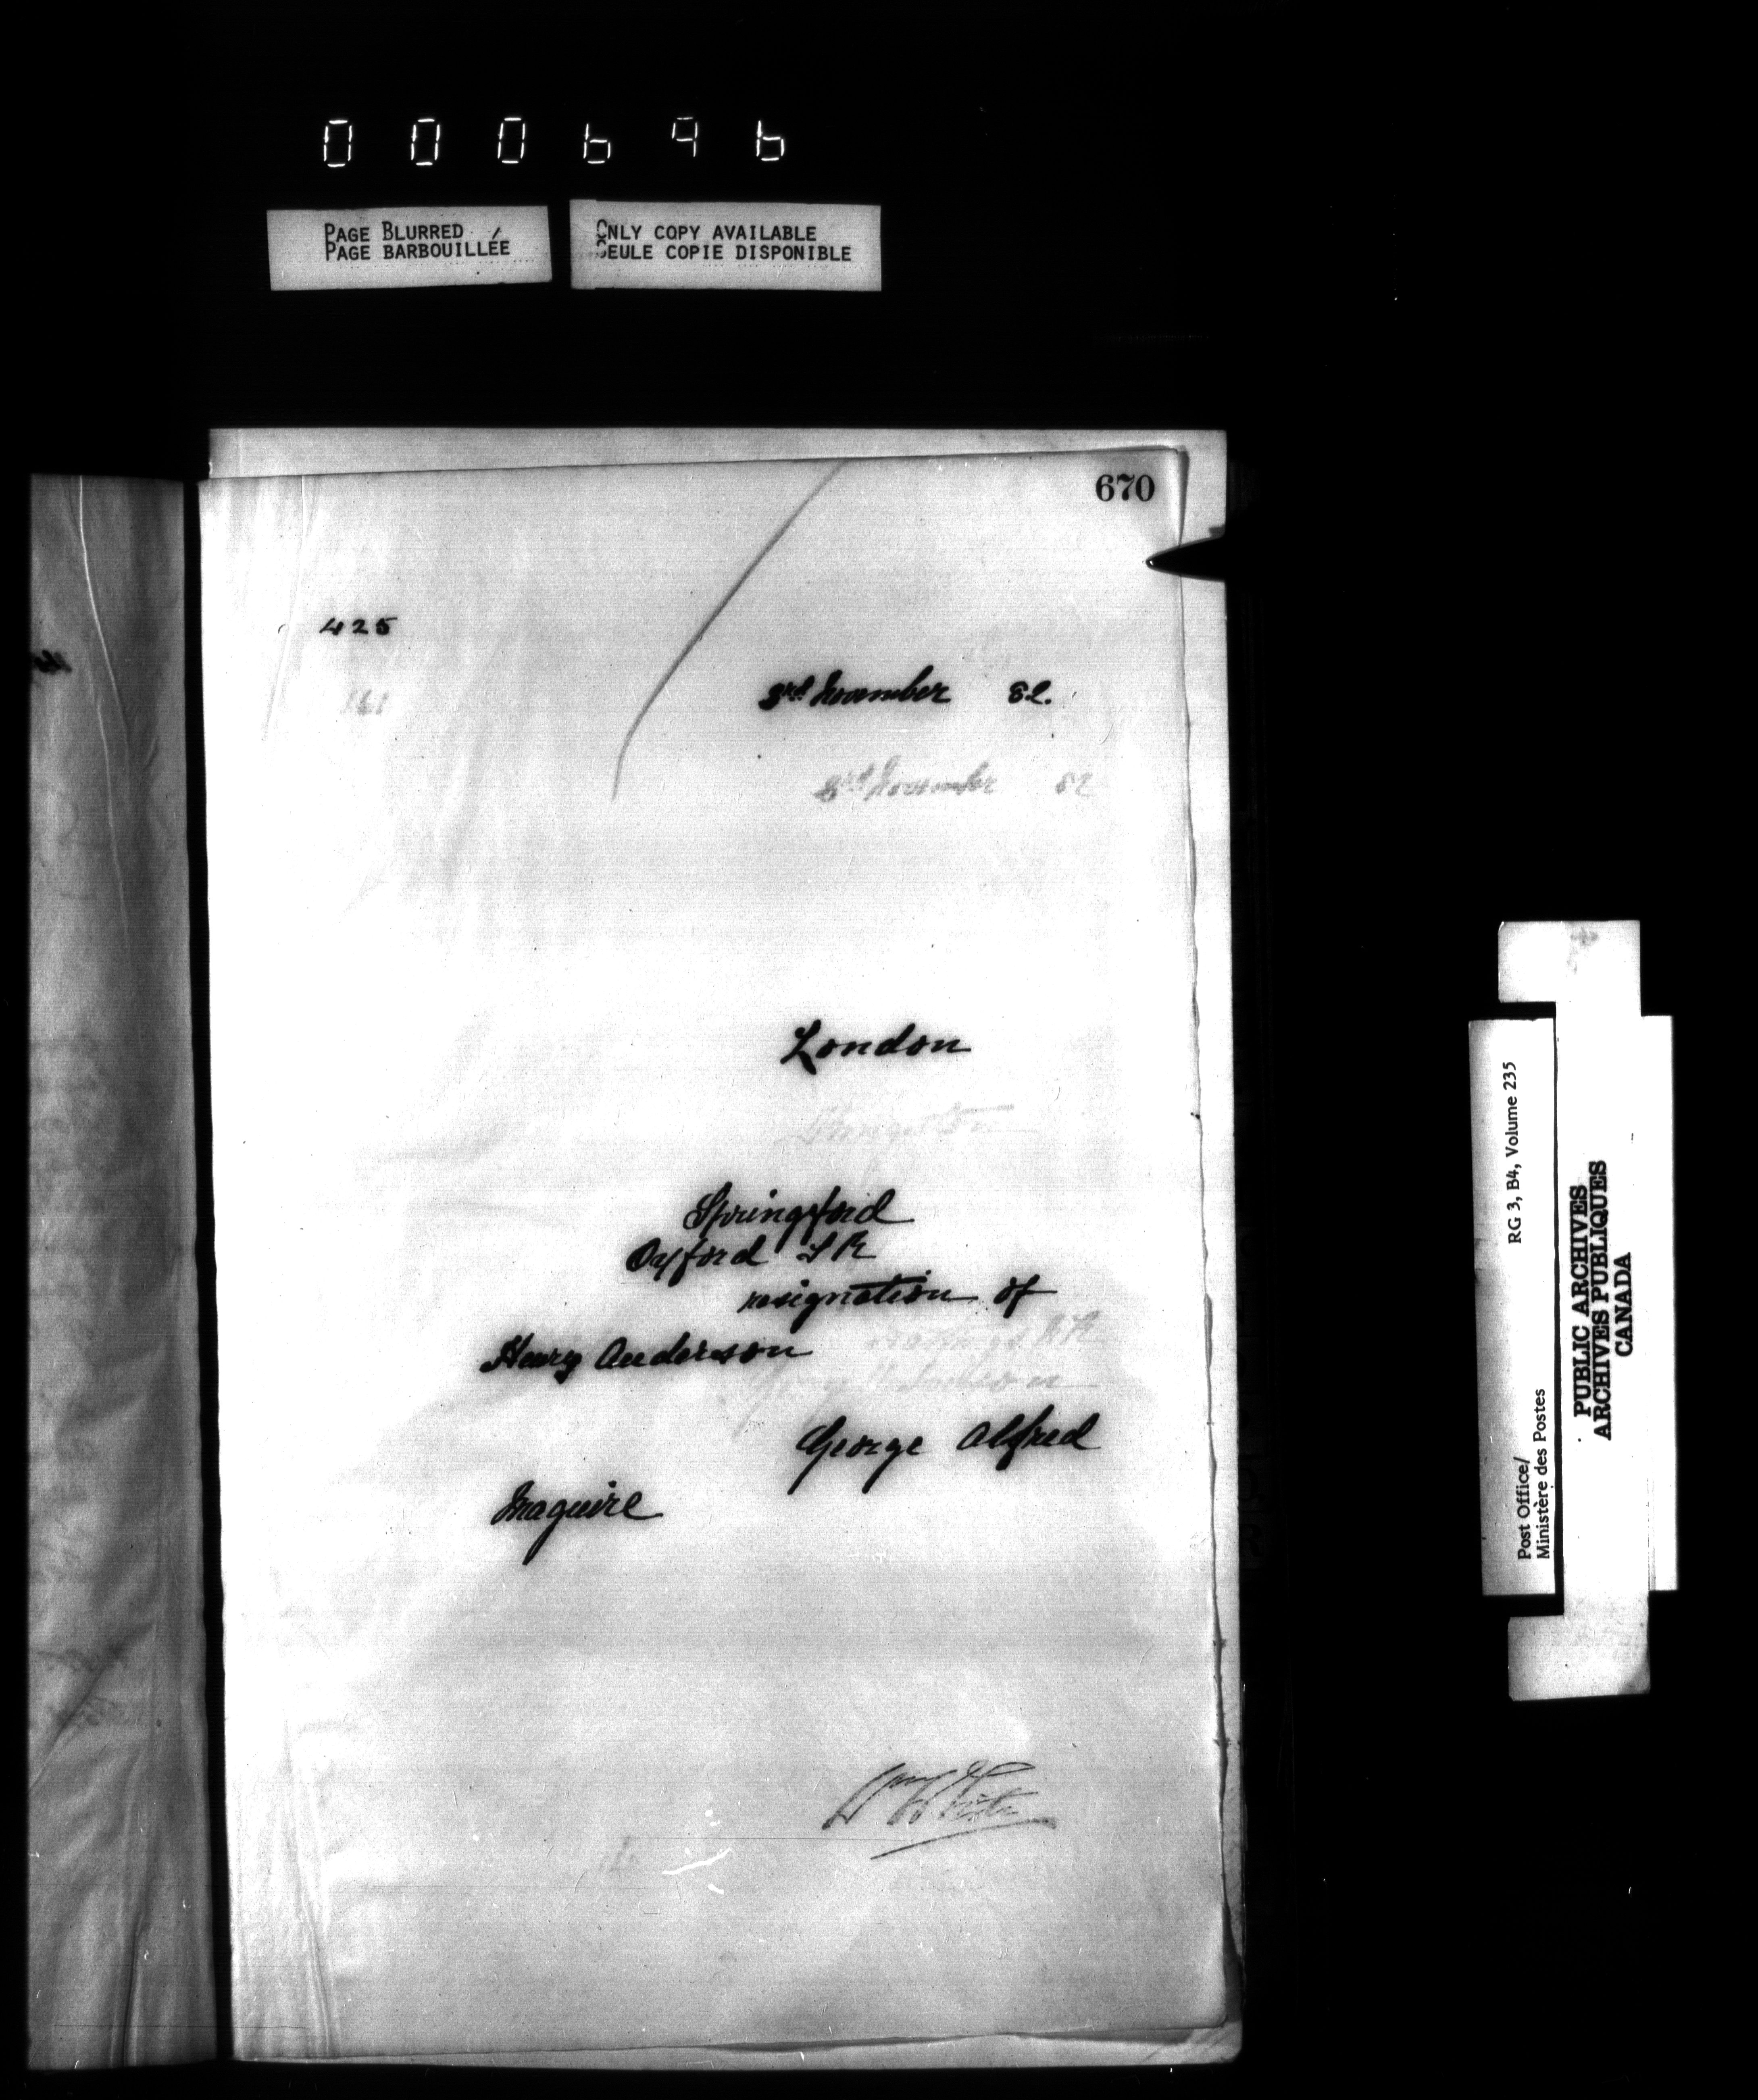 000696
PAGE BLURRED
PAGE BARBOUILLÉE
ONLY COPY AVAILABLE
SEULE COPIE DISPONIBLE
670
425
161
3rd November 82.
3rd November 82
London
Springford
Oxford S R
resignation of
Henry Anderson
George Alfred
Maguire
Wm White
RG 3, B4, Volume 235
Post Office/
Ministère des Postes
PUBLIC ARCHIVES
ARCHIVES PUBLIQUES
CANADA